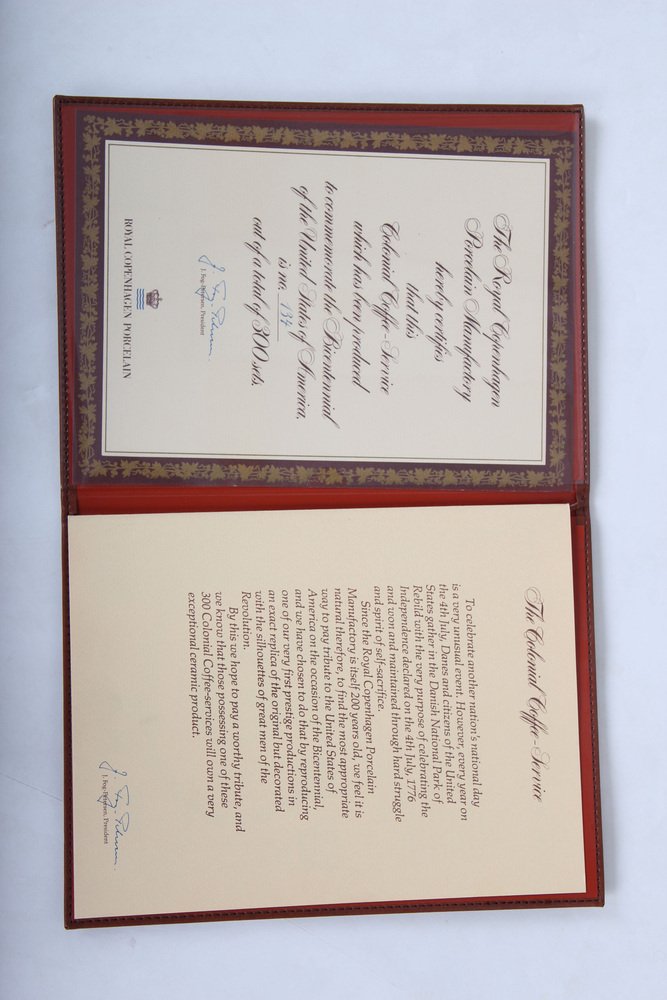 The Royal Copenhagen
Porcelain Manufactory
hereby certifies
that this
Colonial Coffee-Service
which has been produced
to commemorate the Bicentennial
of the United States of America,
is no. 134
out of a total of 300 sets.
J. Fog-Petersen, President
ROYAL COPENHAGEN PORCELAIN
The Colonial Coffee-Service
To celebrate another nation's national day
is a very unusual event. However, every year on
the 4th July, Danes and citizens of the United
States gather in the Danish National Park of
Rebild with the very purpose of celebrating the
Independence declared on the 4th July, 1776
and won and maintained through hard struggle
and spirit of self-sacrifice.
Since the Royal Copenhagen Porcelain
Manufactory is itself 200 years old, we feel it is
natural therefore, to find the most appropriate
way to pay tribute to the United States of
America on the occasion of the Bicentennial,
and we have chosen to do that by reproducing
one of our very first prestige productions in
an exact replica of the original but decorated
with the silhouettes of great men of the
Revolution.
By this we hope to pay a worthy tribute, and
we know that those possessing one of these
300 Colonial Coffee-services will own a very
exceptional ceramic product.
J. Fog-Petersen, President